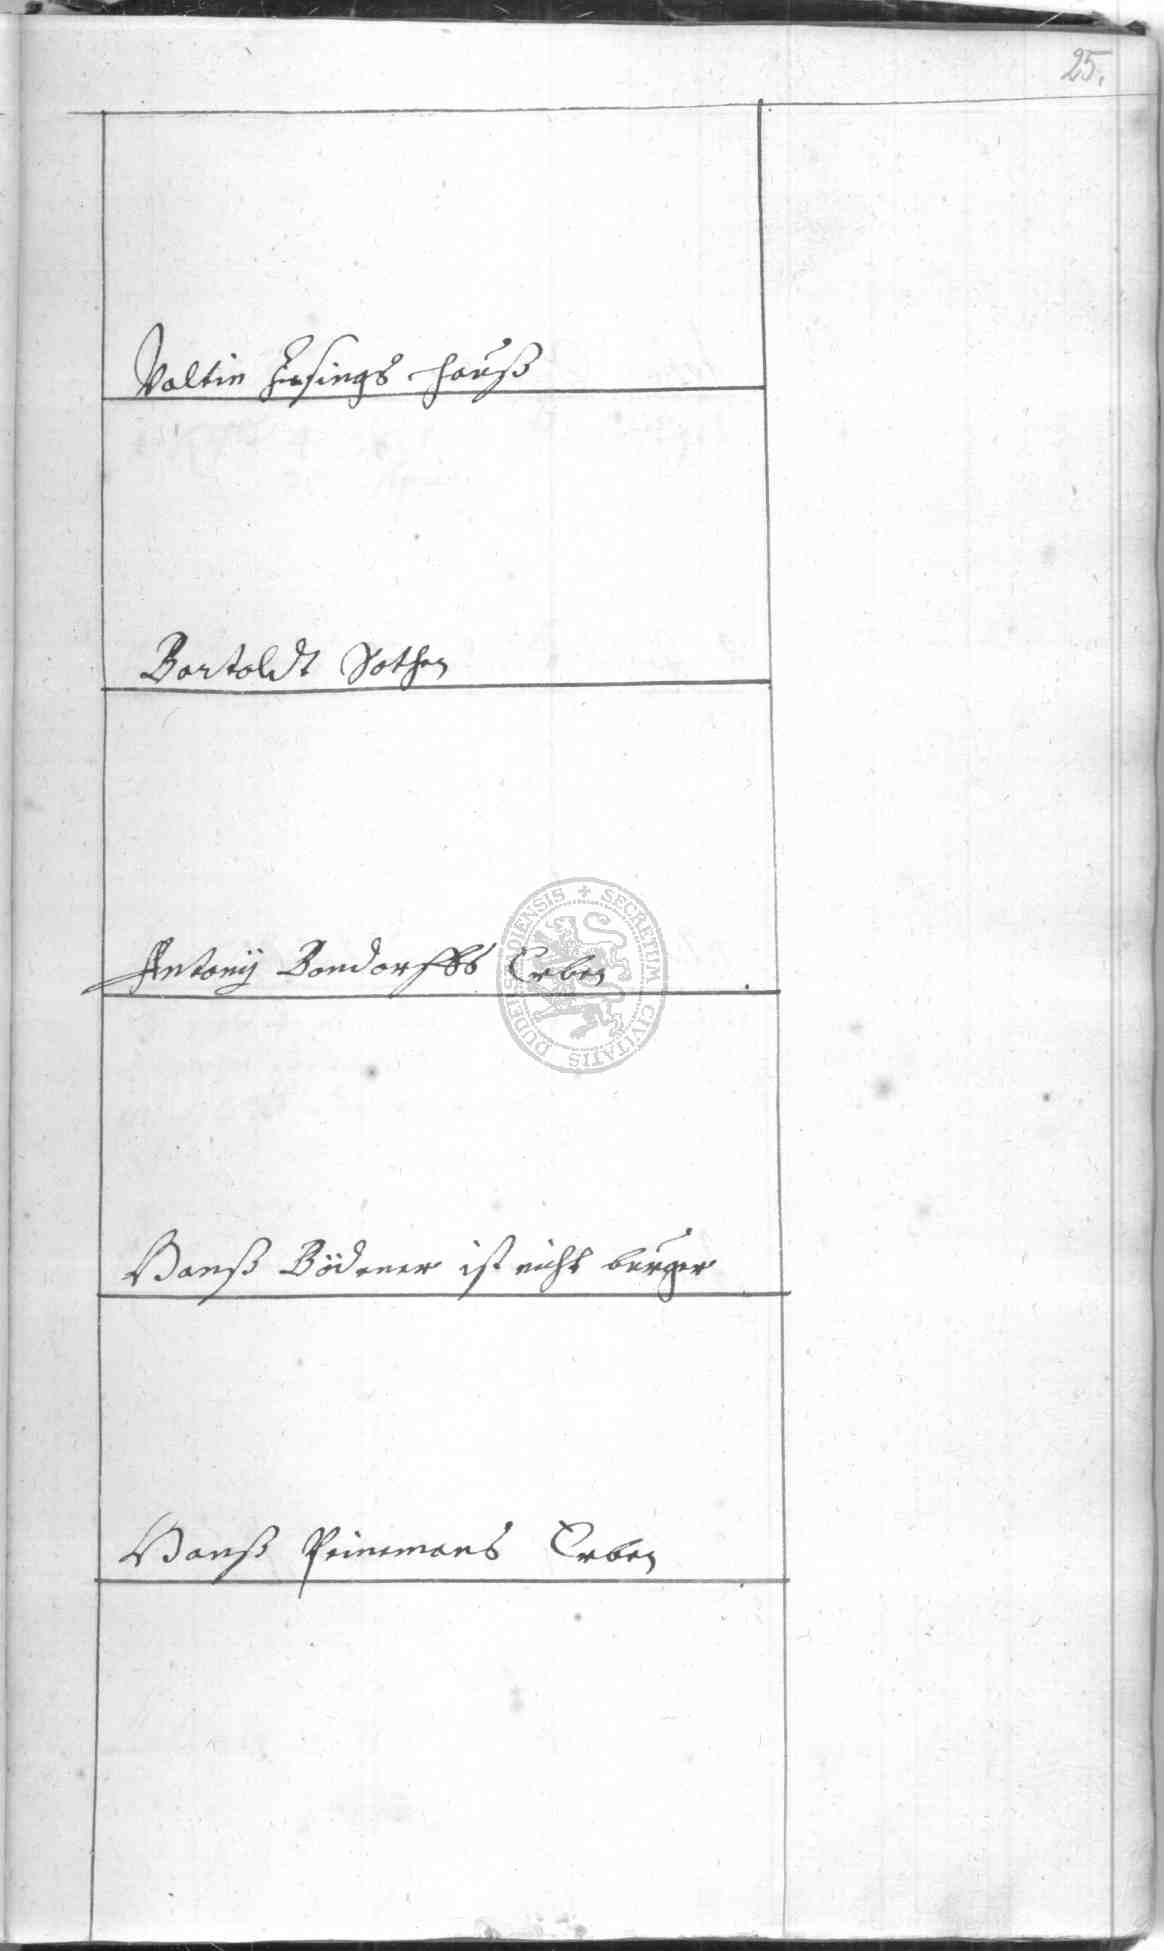 25.
Valtin hauß
Bartoldt Nothen
Antonij Bondorffs Erben
SECRETUM CIVITATIS DUDERSTADIENSIS
Hanß Bödener ist nicht burger
Hanß Peinemans Erben